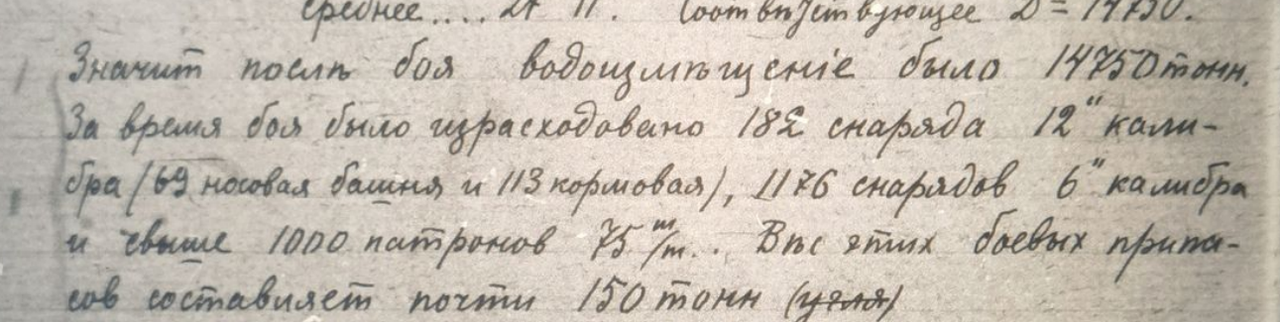 среднее.... 27 11. Соотвѣтствующее D = 14750.
Значит послѣ боя водоизмѣщеніе было 14750 тонн.
За время боя было израсходовано 182 снаряда 12" кали-
бра (69 носовая башня и 113 кормовая), 1176 снарядов 6" калибра
и свыше 1000 патронов 75 m/m. Вѣс этих боевых припа-
сов составляет почти 150 тонн (угля)